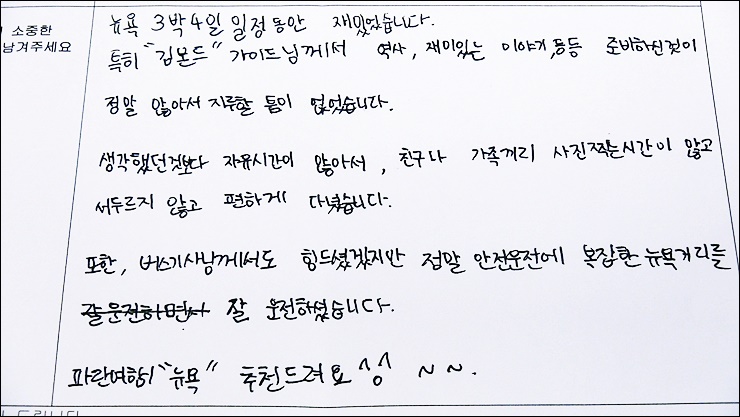 소중한
남겨주세요
뉴욕 3박4일 일정동안 재밌었습니다.
특히 "김몬드" 가이드님께서 역사, 재미있는 이야기,등등 준비하신것이
정말 많아서 지루할 틈이 없었습니다.
생각했던것보다 자유시간이 많아서, 친구나 가족끼리 사진찍는시간이 많고
서두르지 않고 편하게 다녔습니다.
또한, 버스기사님께서도 힘드셨겠지만 정말 안전운전에 복잡한 뉴욕거리를
잘운전하면서 잘 운전하셨습니다.
파란여행 "뉴욕" 추천드려요 ^^ ~ ~.